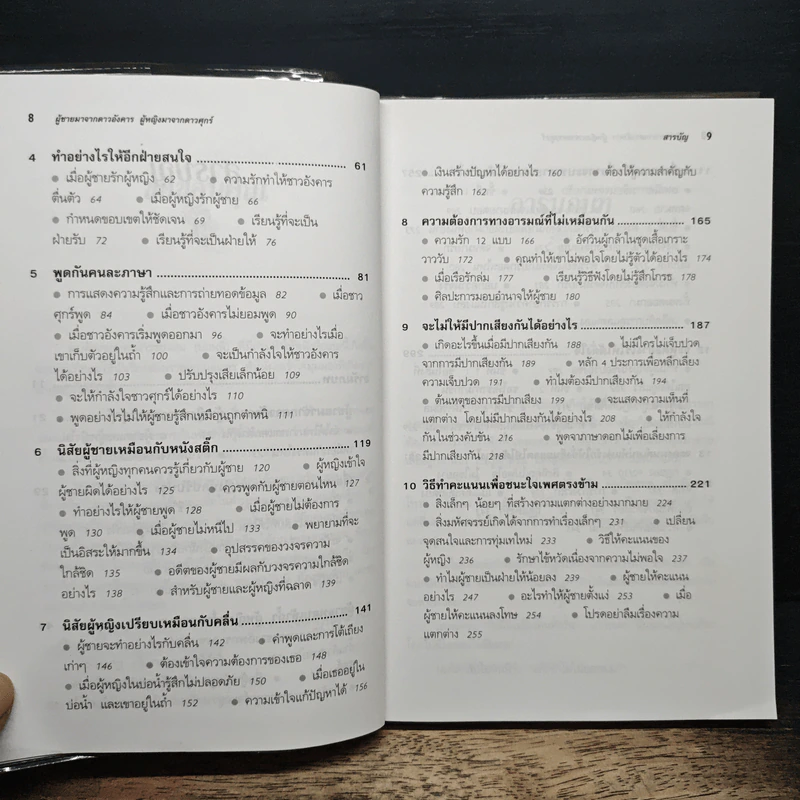 8 ผู้ชายมาจากดาวอังคาร ผู้หญิงมาจากดาวศุกร์
4 ทำอย่างไรให้อีกฝ่ายสนใจ ........................................ 61
● เมื่อผู้ชายรักผู้หญิง 62 ● ความรักทำให้ชาวอังคาร
ตื่นตัว 64 ● เมื่อผู้หญิงรักผู้ชาย 66
● กำหนดขอบเขตให้ชัดเจน 69 ● เรียนรู้ที่จะเป็น
ฝ่ายรับ 72 ● เรียนรู้ที่จะเป็นฝ่ายให้ 76
5 พูดกันคนละภาษา ........................................ 81
● การแสดงความรู้สึกและการถ่ายทอดข้อมูล 82 ● เมื่อชาว
ศุกร์พูด 84 ● เมื่อชาวอังคารไม่ยอมพูด 90
● เมื่อชาวอังคารเริ่มพูดออกมา 96 ● จะทำอย่างไรเมื่อ
เขาเก็บตัวอยู่ในถ้ำ 100 ● จะเป็นกำลังใจให้ชาวอังคาร
ได้อย่างไร 103 ● ปรับปรุงเสียเล็กน้อย 109
● จะให้กำลังใจชาวศุกร์ได้อย่างไร 110
● พูดอย่างไรไม่ให้ผู้ชายรู้สึกเหมือนถูกตำหนิ 111
6 นิสัยผู้ชายเหมือนกับหนังสติ๊ก ........................................ 119
● สิ่งที่ผู้หญิงทุกคนควรรู้เกี่ยวกับผู้ชาย 120 ● ผู้หญิงเข้าใจ
ผู้ชายผิดได้อย่างไร 125 ● ควรพูดกับผู้ชายตอนไหน 127
● ทำอย่างไรให้ผู้ชายพูด 128 ● เมื่อผู้ชายไม่ต้องการ
พูด 130 ● เมื่อผู้ชายไม่หนีไป 133 ● พยายามที่จะ
เป็นอิสระให้มากขึ้น 134 ● อุปสรรคของวงจรความ
ใกล้ชิด 135 ● อดีตของผู้ชายมีผลกับวงจรความใกล้ชิด
อย่างไร 138 ● สำหรับผู้ชายและผู้หญิงที่ฉลาด 139
7 นิสัยผู้หญิงเปรียบเหมือนกับคลื่น ........................................ 141
● ผู้ชายจะทำอย่างไรกับคลื่น 142 ● คำพูดและการโต้เถียง
เก่าๆ 146 ● ต้องเข้าใจความต้องการของเธอ 148
● เมื่อผู้หญิงในบ่อน้ำรู้สึกไม่ปลอดภัย 150 ● เมื่อเธออยู่ใน
บ่อน้ำ และเขาอยู่ในถ้ำ 152 ● ความเข้าใจแก้ปัญหาได้ 156
สารบัญ 9
● เงินสร้างปัญหาได้อย่างไร 160 ● ต้องให้ความสำคัญกับ
ความรู้สึก 162
8 ความต้องการทางอารมณ์ที่ไม่เหมือนกัน ........................ 165
● ความรัก 12 แบบ 166 ● อัศวินผู้กล้าในชุดเสื้อเกราะ
วาววับ 172 ● คุณทำให้เขาไม่พอใจโดยไม่รู้ตัวได้อย่างไร 174
● เมื่อเรือรักล่ม 177 ● เรียนรู้วิธีฟังโดยไม่รู้สึกโกรธ 178
● ศิลปะการมอบอำนาจให้ผู้ชาย 180
9 จะไม่ให้มีปากเสียงกันได้อย่างไร ........................ 187
● เกิดอะไรขึ้นเมื่อมีปากเสียงกัน 188 ● ไม่มีใครไม่เจ็บปวด
จากการมีปากเสียงกัน 189 ● หลัก 4 ประการเพื่อหลีกเลี่ยง
ความเจ็บปวด 191 ● ทำไมต้องมีปากเสียงกัน 194
● ต้นเหตุของการมีปากเสียง 199 ● จะแสดงความเห็นที่
แตกต่าง โดยไม่มีปากเสียงกันได้อย่างไร 208 ● ให้กำลังใจ
กันในช่วงคับขัน 216 ● พูดจาภาษาดอกไม้เพื่อเลี่ยงการ
มีปากเสียงกัน 218
10 วิธีทำคะแนนเพื่อชนะใจเพศตรงข้าม ........................ 221
● สิ่งเล็กๆ น้อยๆ ที่สร้างความแตกต่างอย่างมากมาย 224
● สิ่งมหัศจรรย์เกิดได้จากการทำเรื่องเล็กๆ 231 ● เปลี่ยน
จุดสนใจและการทุ่มเทใหม่ 233 ● วิธีให้คะแนนของ
ผู้หญิง 236 ● รักษาไข้หวัดเนื่องจากความไม่พอใจ 237
● ทำไมผู้ชายเป็นฝ่ายให้น้อยลง 239 ● ผู้ชายให้คะแนน
อย่างไร 247 ● อะไรทำให้ผู้ชายตั้งแง่ 253 ● เมื่อ
ผู้ชายให้คะแนนลงโทษ 254 ● โปรดอย่าลืมเรื่องความ
แตกต่าง 255